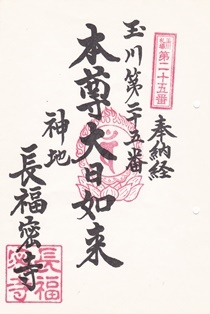 玉川
札所
第二十五番
奉納経
玉川第二十五番
本尊大日如来
神地
長福密寺
長福
密寺